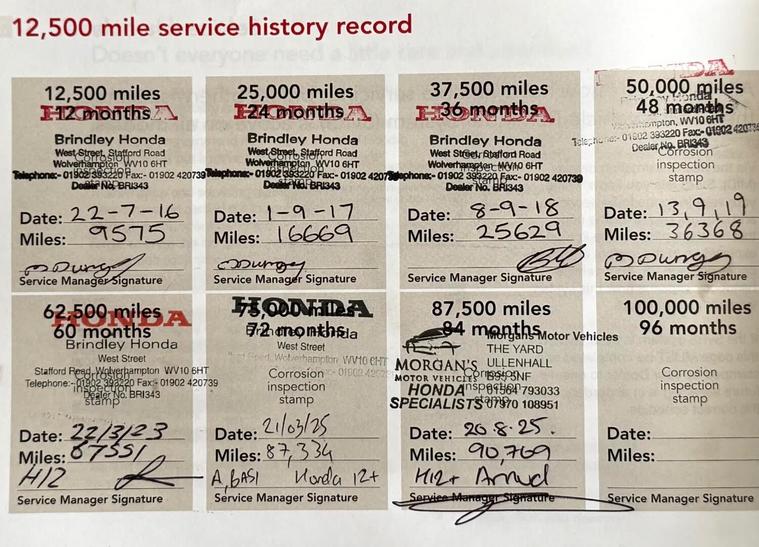 12,500 mile service history record
12,500 miles
12 months
HONDA
Brindley Honda
West Street, Stafford Road
Wolverhampton WV10 6HT
Corrosion
inspection
stamp
Telephone:- 01902 393220 Fax:- 01902 420739
Dealer No. BRI343
Date: 22-7-16
Miles: 9575
Service Manager Signature
25,000 miles
24 months
HONDA
Brindley Honda
West Street, Stafford Road
Wolverhampton WV10 6HT
Corrosion
inspection
stamp
Telephone:- 01902 393220 Fax:- 01902 420739
Dealer No. BRI343
Date: 1-9-17
Miles: 16669
Service Manager Signature
37,500 miles
36 months
HONDA
Brindley Honda
West Street, Stafford Road
Wolverhampton WV10 6HT
Corrosion
inspection
stamp
Telephone:- 01902 393220 Fax:- 01902 420739
Dealer No. BRI343
Date: 8-9-18
Miles: 25629
Service Manager Signature
50,000 miles
48 months
Honda
WV10 6HT
01902 393220 Fax:- 01902 420739
Dealer No. BRI343
Corrosion
inspection
stamp
Date: 13,9,19
Miles: 36368
Service Manager Signature
62,500 miles
60 months
HONDA
Brindley Honda
West Street
Stafford Road, Wolverhampton WV10 6HT
Telephone:- 01902 393220 Fax:- 01902 420739
Dealer No. BRI343
Corrosion
inspection
stamp
Date: 22/3/23
Miles: 67551
H12
Service Manager Signature
75,000 miles
72 months
HONDA
Brindley Honda
West Street
Wolverhampton WV10 6HT
Corrosion
inspection
stamp
Date: 21/03/25
Miles: 87,334
A, BASI Honda 12+
Service Manager Signature
87,500 miles
84 months
Morgans Motor Vehicles
THE YARD
ULLENHALL
B95 5NF
01564 793033
07970 108951
MORGAN'S
MOTOR VEHICLES
HONDA
SPECIALISTS
Corrosion
inspection
stamp
Date: 20.8.25.
Miles: 90,769
H12+ Annual
Service Manager Signature
100,000 miles
96 months
Corrosion
inspection
stamp
Date:
Miles:
Service Manager Signature